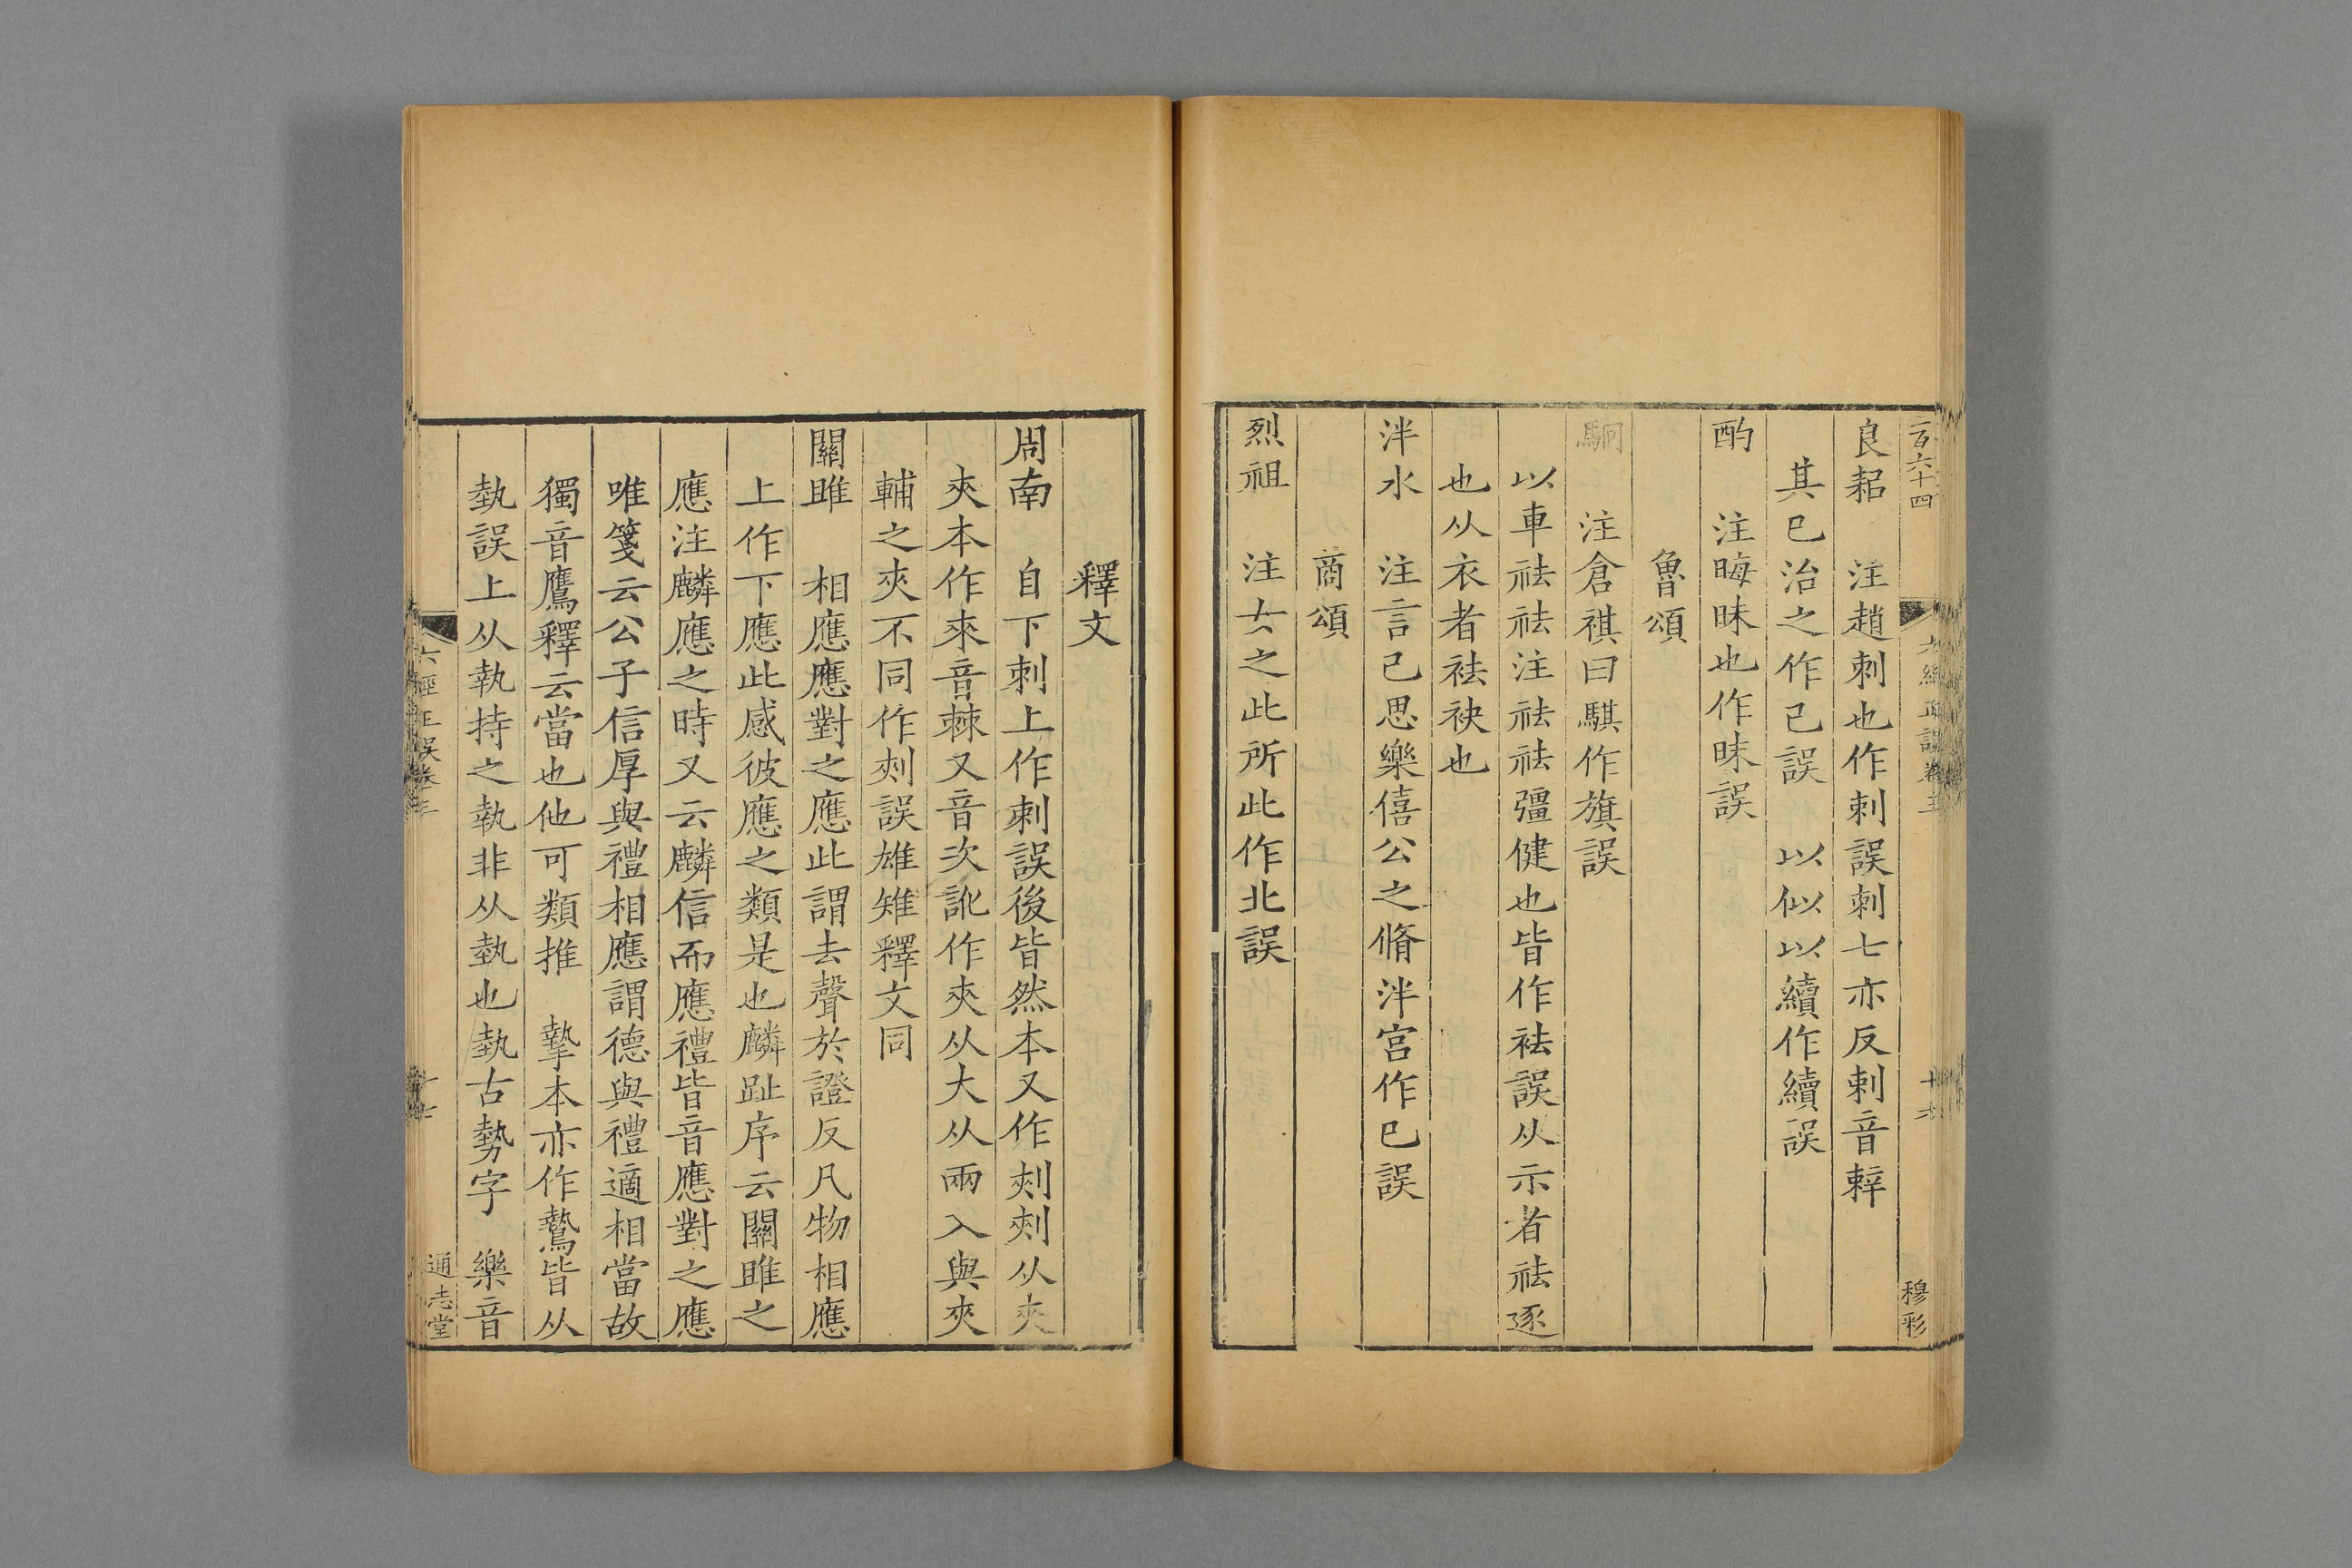 百六十四 六經正誤卷三 十六 穆彩
良耜 注趙刺也作剌誤刺七亦反剌音辢
其已治之作己誤 以似以續作續誤
酌 注晦昧也作眛誤
魯頌
駉 注倉祺曰騏作旗誤
以車祛祛注祛祛彊健也皆作袪誤从示者祛逐
也从衣者袪袂也
泮水 注言己思樂僖公之脩泮宮作巳誤
商頌
烈祖 注 之此所此作北誤
釋文
周南 自下刺上作剌誤後皆然本又作㓨㓨从夾
夾本作來音棘又音次訛作夾从大从兩入與夾
輔之夾不同作㓨誤雄雉釋文同
關雎 相應應對之應此謂去聲於證反凡物相應
上作下應此感彼應之類是也麟趾序云關雎之
應注麟應之時又云麟信而應禮皆音應對之應
唯箋云公子信厚與禮相應謂德與禮適相當故
獨音鷹釋云當也他可類推 摯本亦作鷙皆从
埶誤上从執持之執非从埶也埶古勢字 樂音
六經正誤卷三 十七 通志堂